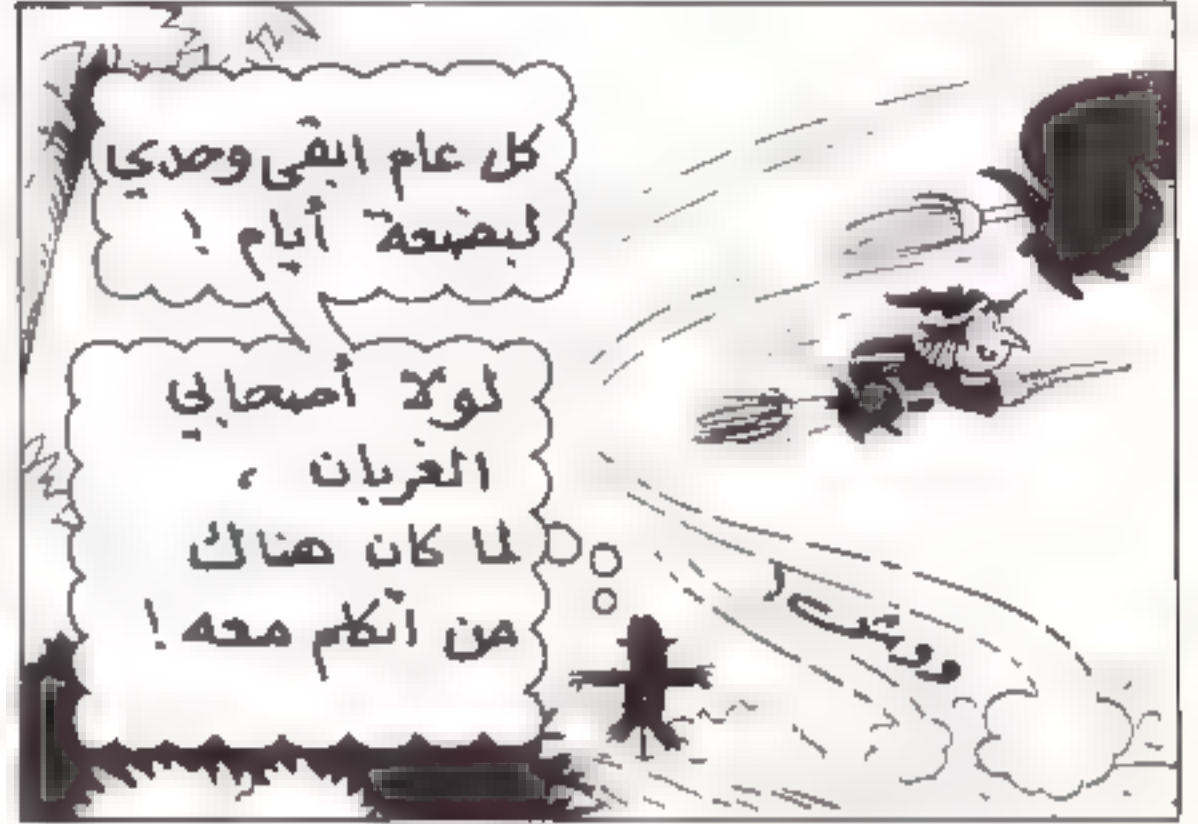 كل عام ابقى وحدي
لبضعة أيام !
لولا أصحابي
الغربان ،
لما كان هناك
من أتكلم معه !
ووش